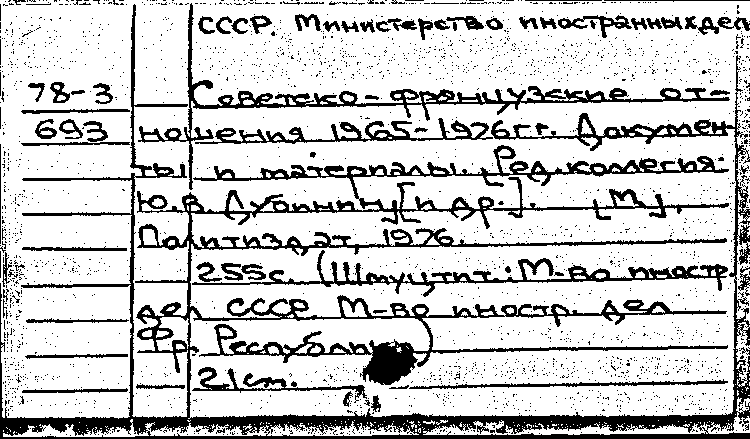 СССР. Министерство иностранных дел
78-3 Советско-французские от-
693 ношения 1965-1976гг. Докумен-
ты и материалы. [Ред.коллегия:
Ю.В. Дубинин] [и др.]. [М.],
Политиздат, 1976.
255с. (Шмуцтит.: М-во иностр.
дел СССР. М-во иностр. дел
Фр. Республики)
21см.